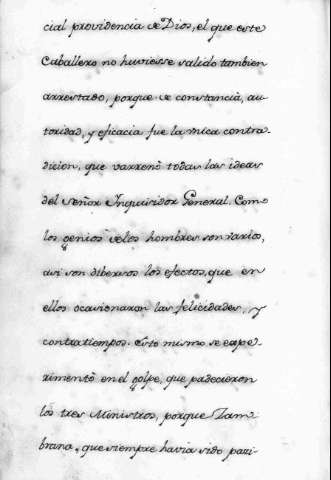 cial providencia de Dios, el que este
Caballero no huviesse salido tambien
arrestado, porque se constancia, au-
toridad, y eficacia fue la unica contra-
dicion, que varrenò todas las ideas
del Señor Inquisidor General. Como
los genios de los hombres son varios,
asi son dibersos los efectos, que en
ellos ocasionaron las felicidades, y
contratiempos. Esto mismo se expe-
rimentò en el golpe, que padecieron
los tres Ministros, porque Zam-
brana, que siempre havia sido pazi-